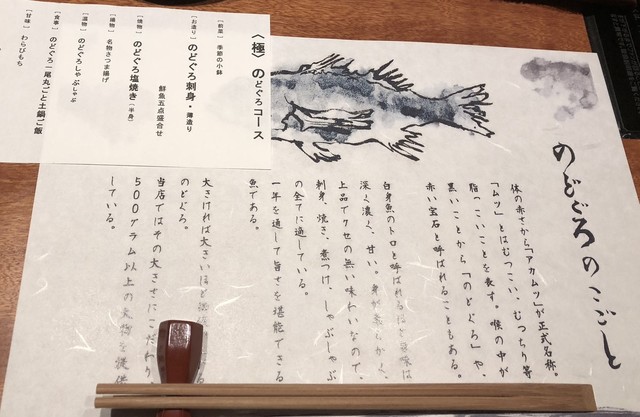 〈極〉のどぐろコース
[前菜] 季節の小鉢
[お造り] のどぐろ刺身・薄造り
鮮魚五点盛合せ
[焼物] のどぐろ塩焼き(半身)
[揚物] 名物さつま揚げ
[温物] のどぐろしゃぶしゃぶ
[食事] のどぐろ一尾丸ごと土鍋ご飯
[甘味] わらびもち
のどぐろのこごと
体の赤さから「アカムツ」が正式名称。
「ムツ」とはむつこい、むつちり等
脂っこいことを表す。喉の中が
黒いことから「のどぐろ」や、
赤い宝石と呼ばれることもある。
白身魚のトロと呼ばれるほど
深く濃く、甘い。身が柔らかく、
上品でクセの無い味わいなので、
刺身、焼き、煮つけ、しゃぶしゃぶ
の全てに適している。
一年を通して旨さを堪能できる
魚である。
大きければ大きいほど
のどぐろ。
当店ではその大きさにこだわり、
500グラム以上の
している。